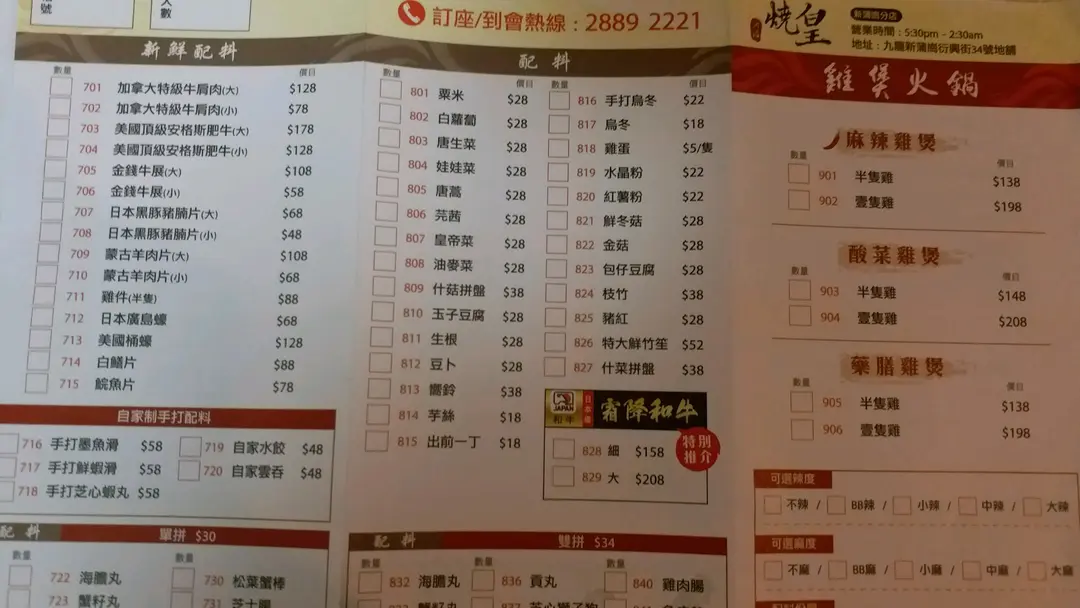 號
人數
訂座/到會熱線：2889 2221
新鮮配料
數量 價目
701 加拿大特級牛肩肉(大) $128
702 加拿大特級牛肩肉(小) $78
703 美國頂級安格斯肥牛(大) $178
704 美國頂級安格斯肥牛(小) $128
705 金錢牛展(大) $108
706 金錢牛展(小) $58
707 日本黑豚豬腩片(大) $68
708 日本黑豚豬腩片(小) $48
709 蒙古羊肉片(大) $108
710 蒙古羊肉片(小) $68
711 雞件(半隻) $88
712 日本廣島蠔 $68
713 美國桶蠔 $128
714 白鱔片 $88
715 鯇魚片 $78
自家制手打配料
716 手打墨魚滑 $58
717 手打鮮蝦滑 $58
718 手打芝心蝦丸 $58
719 自家水餃 $48
720 自家雲吞 $48
配料 單拼 $30
數量 數量
722 海膽丸
723 蟹籽丸
730 松葉蟹棒
731 芝士腸
配料
數量 價目
801 粟米 $28
802 白蘿蔔 $28
803 唐生菜 $28
804 娃娃菜 $28
805 唐蒿 $28
806 芫茜 $28
807 皇帝菜 $28
808 油麥菜 $28
809 什菇拼盤 $38
810 玉子豆腐 $28
811 生根 $28
812 豆卜 $28
813 響鈴 $38
814 芋絲 $18
815 出前一丁 $18
數量 價目
816 手打烏冬 $22
817 烏冬 $18
818 雞蛋 $5/隻
819 水晶粉 $22
820 紅薯粉 $22
821 鮮冬菇 $28
822 金菇 $28
823 包仔豆腐 $28
824 枝竹 $38
825 豬紅 $28
826 特大鮮竹笙 $52
827 什菜拼盤 $38
JAPAN
和牛
日本產
霜降和牛
特別推介
828 細 $158
829 大 $208
配料 雙拼 $34
數量 數量 數量
832 海膽丸
836 貢丸
840 雞肉腸
燒皇
新蒲崗分店
營業時間：5:30pm - 2:30am
地址：九龍新蒲崗衍興街34號地舖
雞煲火鍋
麻辣雞煲
數量 價目
901 半隻雞 $138
902 壹隻雞 $198
酸菜雞煲
數量 價目
903 半隻雞 $148
904 壹隻雞 $208
藥膳雞煲
數量 價目
905 半隻雞 $138
906 壹隻雞 $198
可選辣度
不辣 / BB辣 / 小辣 / 中辣 / 大辣
可選麻度
不麻 / BB麻 / 小麻 / 中麻 / 大麻